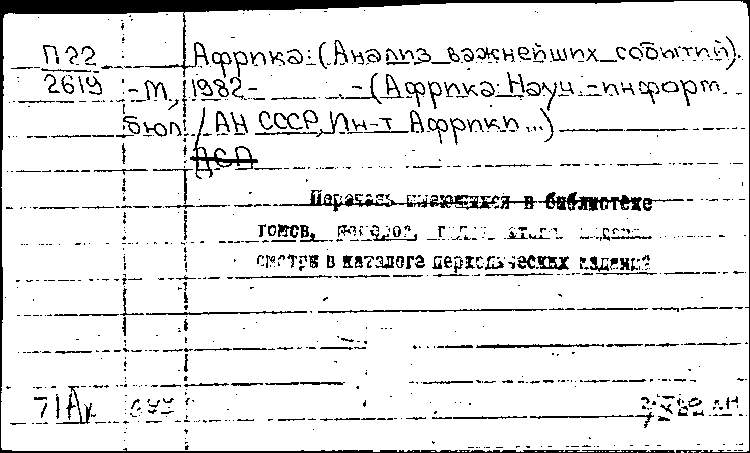 П22 Африка: (Анализ важнейших событий).
2619 -М, 1982- -(Африка: Науч.-информ.
бюл. / АН СССР, Ин-т Африки...)
ДСП
Перечень имеющихся в библиотеке
томов, номеров,
смотри в каталоге периодических изданий
71Ак